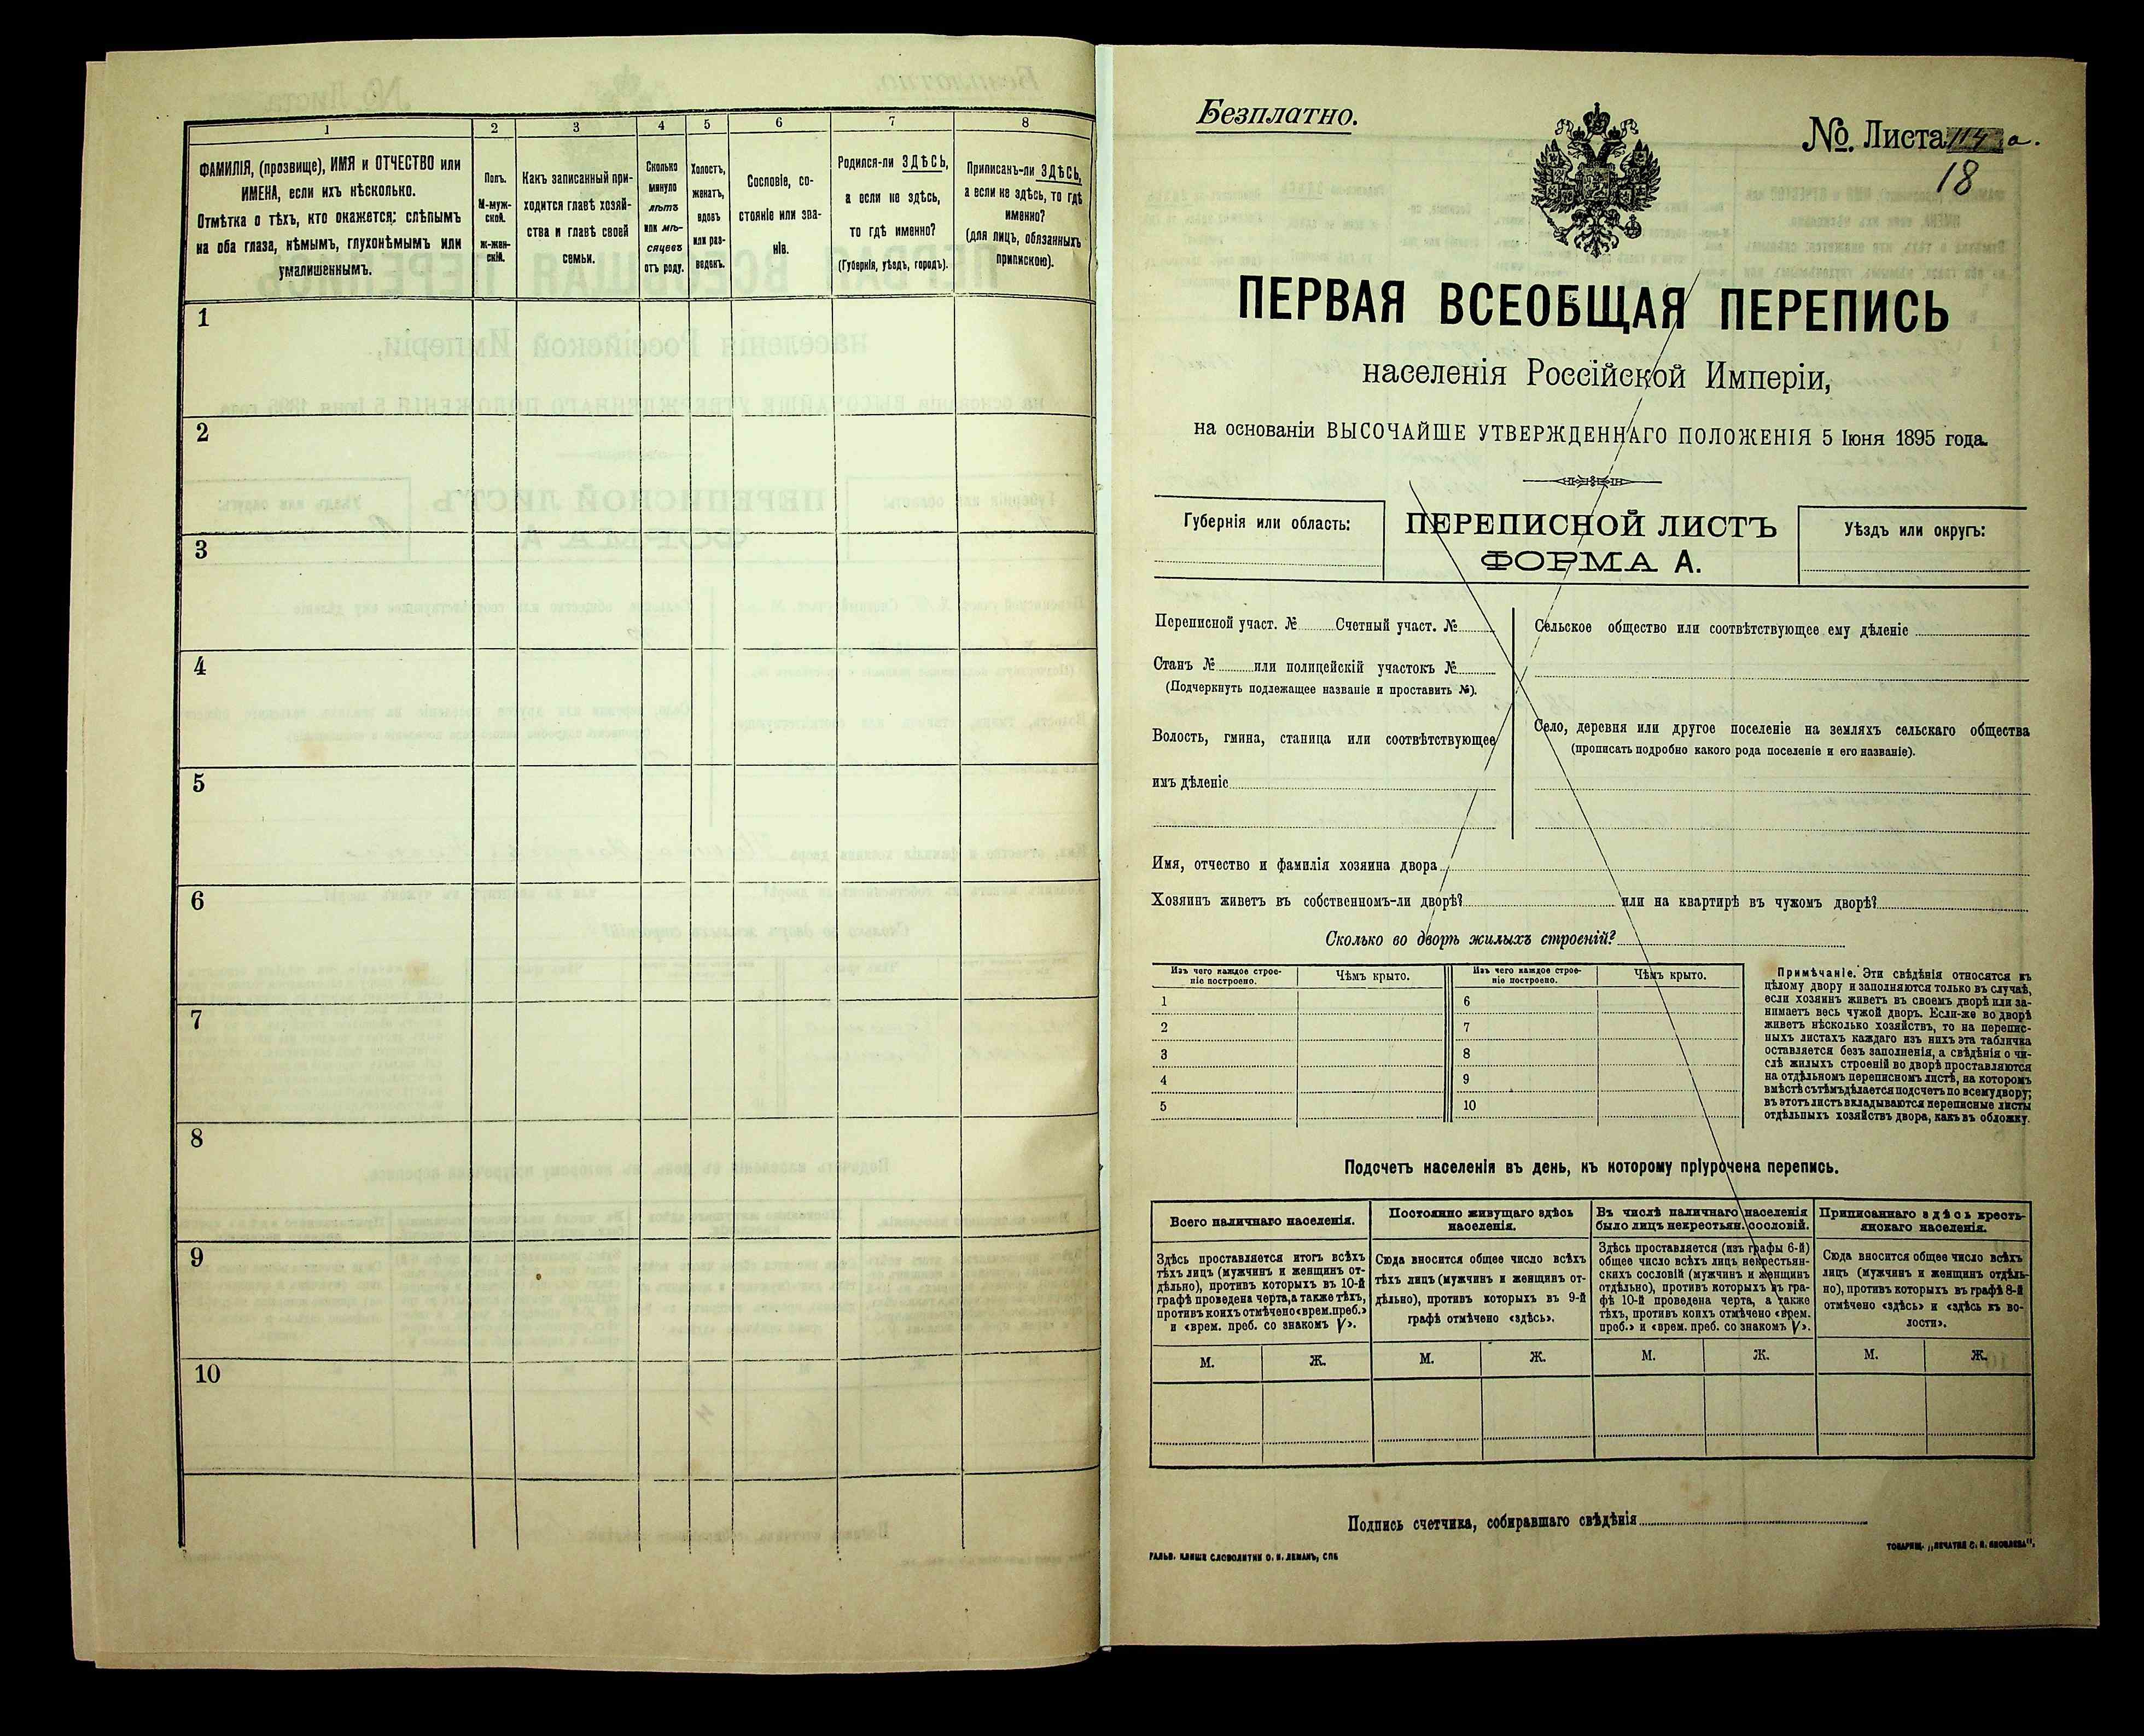 1
2
3
4
5
6
7
8
ФАМИЛІЯ, (прозвище), ИМЯ и ОТЧЕСТВО или
ИМЕНА, если ихъ нѣсколько.
Отмѣтка о тѣхъ, кто окажется: слѣпымъ
на оба глаза, нѣмымъ, глухонѣмымъ или
умалишеннымъ.
Полъ.
М-муж-
ской.
ж-жен-
скій.
Какъ записанный при-
ходится главѣ хозяй-
ства и главѣ своей
семьи.
Сколько
минуло
лѣтъ
или мѣ-
сяцевъ
отъ роду.
Холостъ,
женатъ,
вдовъ
или раз-
веденъ.
Сословіе, со-
стояніе или зва-
ніе.
Родился-ли ЗДѢСЬ,
а если не здѣсь,
то гдѣ именно?
(Губернія, уѣздъ, городъ).
Приписанъ-ли ЗДѢСЬ,
а если не здѣсь, то гдѣ
именно?
(для лицъ, обязанныхъ
припискою).
1
2
3
4
5
6
7
8
9
10
Безплатно.
№ Листа 114 а.
18
ПЕРВАЯ ВСЕОБЩАЯ ПЕРЕПИСЬ
населенія Россійской Имперіи,
на основаніи ВЫСОЧАЙШЕ УТВЕРЖДЕННАГО ПОЛОЖЕНІЯ 5 Іюня 1895 года.
Губернія или область:
ПЕРЕПИСНОЙ ЛИСТЪ
ФОРМА А.
Уѣздъ или округъ:
Переписной участ. № Счетный участ. №
Станъ № или полицейскій участокъ №
(Подчеркнуть подлежащее названіе и проставить №).
Волость, гмина, станица или соотвѣтствующее
имъ дѣленіе
Сельское общество или соотвѣтствующее ему дѣленіе
Село, деревня или другое поселеніе на земляхъ сельскаго общества
(прописать подробно какого рода поселеніе и его названіе).
Имя, отчество и фамилія хозяина двора
Хозяинъ живетъ въ собственномъ-ли дворѣ? или на квартирѣ въ чужомъ дворѣ?
Сколько во дворѣ жилыхъ строеній?
Изъ чего каждое строе-
ніе построено.
Чѣмъ крыто.
Изъ чего каждое строе-
ніе построено.
Чѣмъ крыто.
1
6
2
7
3
8
4
9
5
10
Примѣчаніе. Эти свѣдѣнія относятся къ
цѣлому двору и заполняются только въ случаѣ,
если хозяинъ живетъ въ своемъ дворѣ или за-
нимаетъ весь чужой дворъ. Если-же во дворѣ
живетъ нѣсколько хозяйствъ, то на перепис-
ныхъ листахъ каждаго изъ нихъ эта табличка
оставляется безъ заполненія, а свѣдѣнія о чи-
слѣ жилыхъ строеній во дворѣ проставляются
на отдѣльномъ переписномъ листѣ, на которомъ
вмѣстѣ съ тѣмъ дѣлается подсчетъ по всему двору;
въ этотъ листъ вкладываются переписные листы
отдѣльныхъ хозяйствъ двора, какъ въ обложку.
Подсчетъ населенія въ день, къ которому пріурочена перепись.
Всего наличнаго населенія.
Постоянно живущаго здѣсь
населенія.
Въ числѣ наличнаго населенія
было лицъ некрестьян. сословій.
Приписаннаго здѣсь кресть-
янскаго населенія.
Здѣсь проставляется итогъ всѣхъ
тѣхъ лицъ (мужчинъ и женщинъ от-
дѣльно), противъ которыхъ въ 10-й
графѣ проведена черта, а также тѣхъ,
противъ коихъ отмѣчено «врем. преб.»
и «врем. преб. со знакомъ V».
Сюда вносится общее число всѣхъ
тѣхъ лицъ (мужчинъ и женщинъ от-
дѣльно), противъ которыхъ въ 9-й
графѣ отмѣчено «здѣсь».
Здѣсь проставляется (изъ графы 6-й)
общее число всѣхъ лицъ некрестьян-
скихъ сословій (мужчинъ и женщинъ
отдѣльно), противъ которыхъ въ гра-
фѣ 10-й проведена черта, а также
тѣхъ, противъ коихъ отмѣчено «врем.
преб.» и «врем. преб. со знакомъ V».
Сюда вносится общее число всѣхъ
лицъ (мужчинъ и женщинъ отдѣль-
но), противъ которыхъ въ графѣ 8-й
отмѣчено «здѣсь» и «здѣсь къ во-
лости».
М.
Ж.
М.
Ж.
М.
Ж.
М.
Ж.
Подпись счетчика, собиравшаго свѣдѣнія
ГАЛЬВ. КЛИШЕ СЛОВОЛИТНИ О. И. ЛЕМАНЪ, СПБ
ТОВАРИЩ. „ПЕЧАТНЯ С. П. ЯКОВЛЕВА".